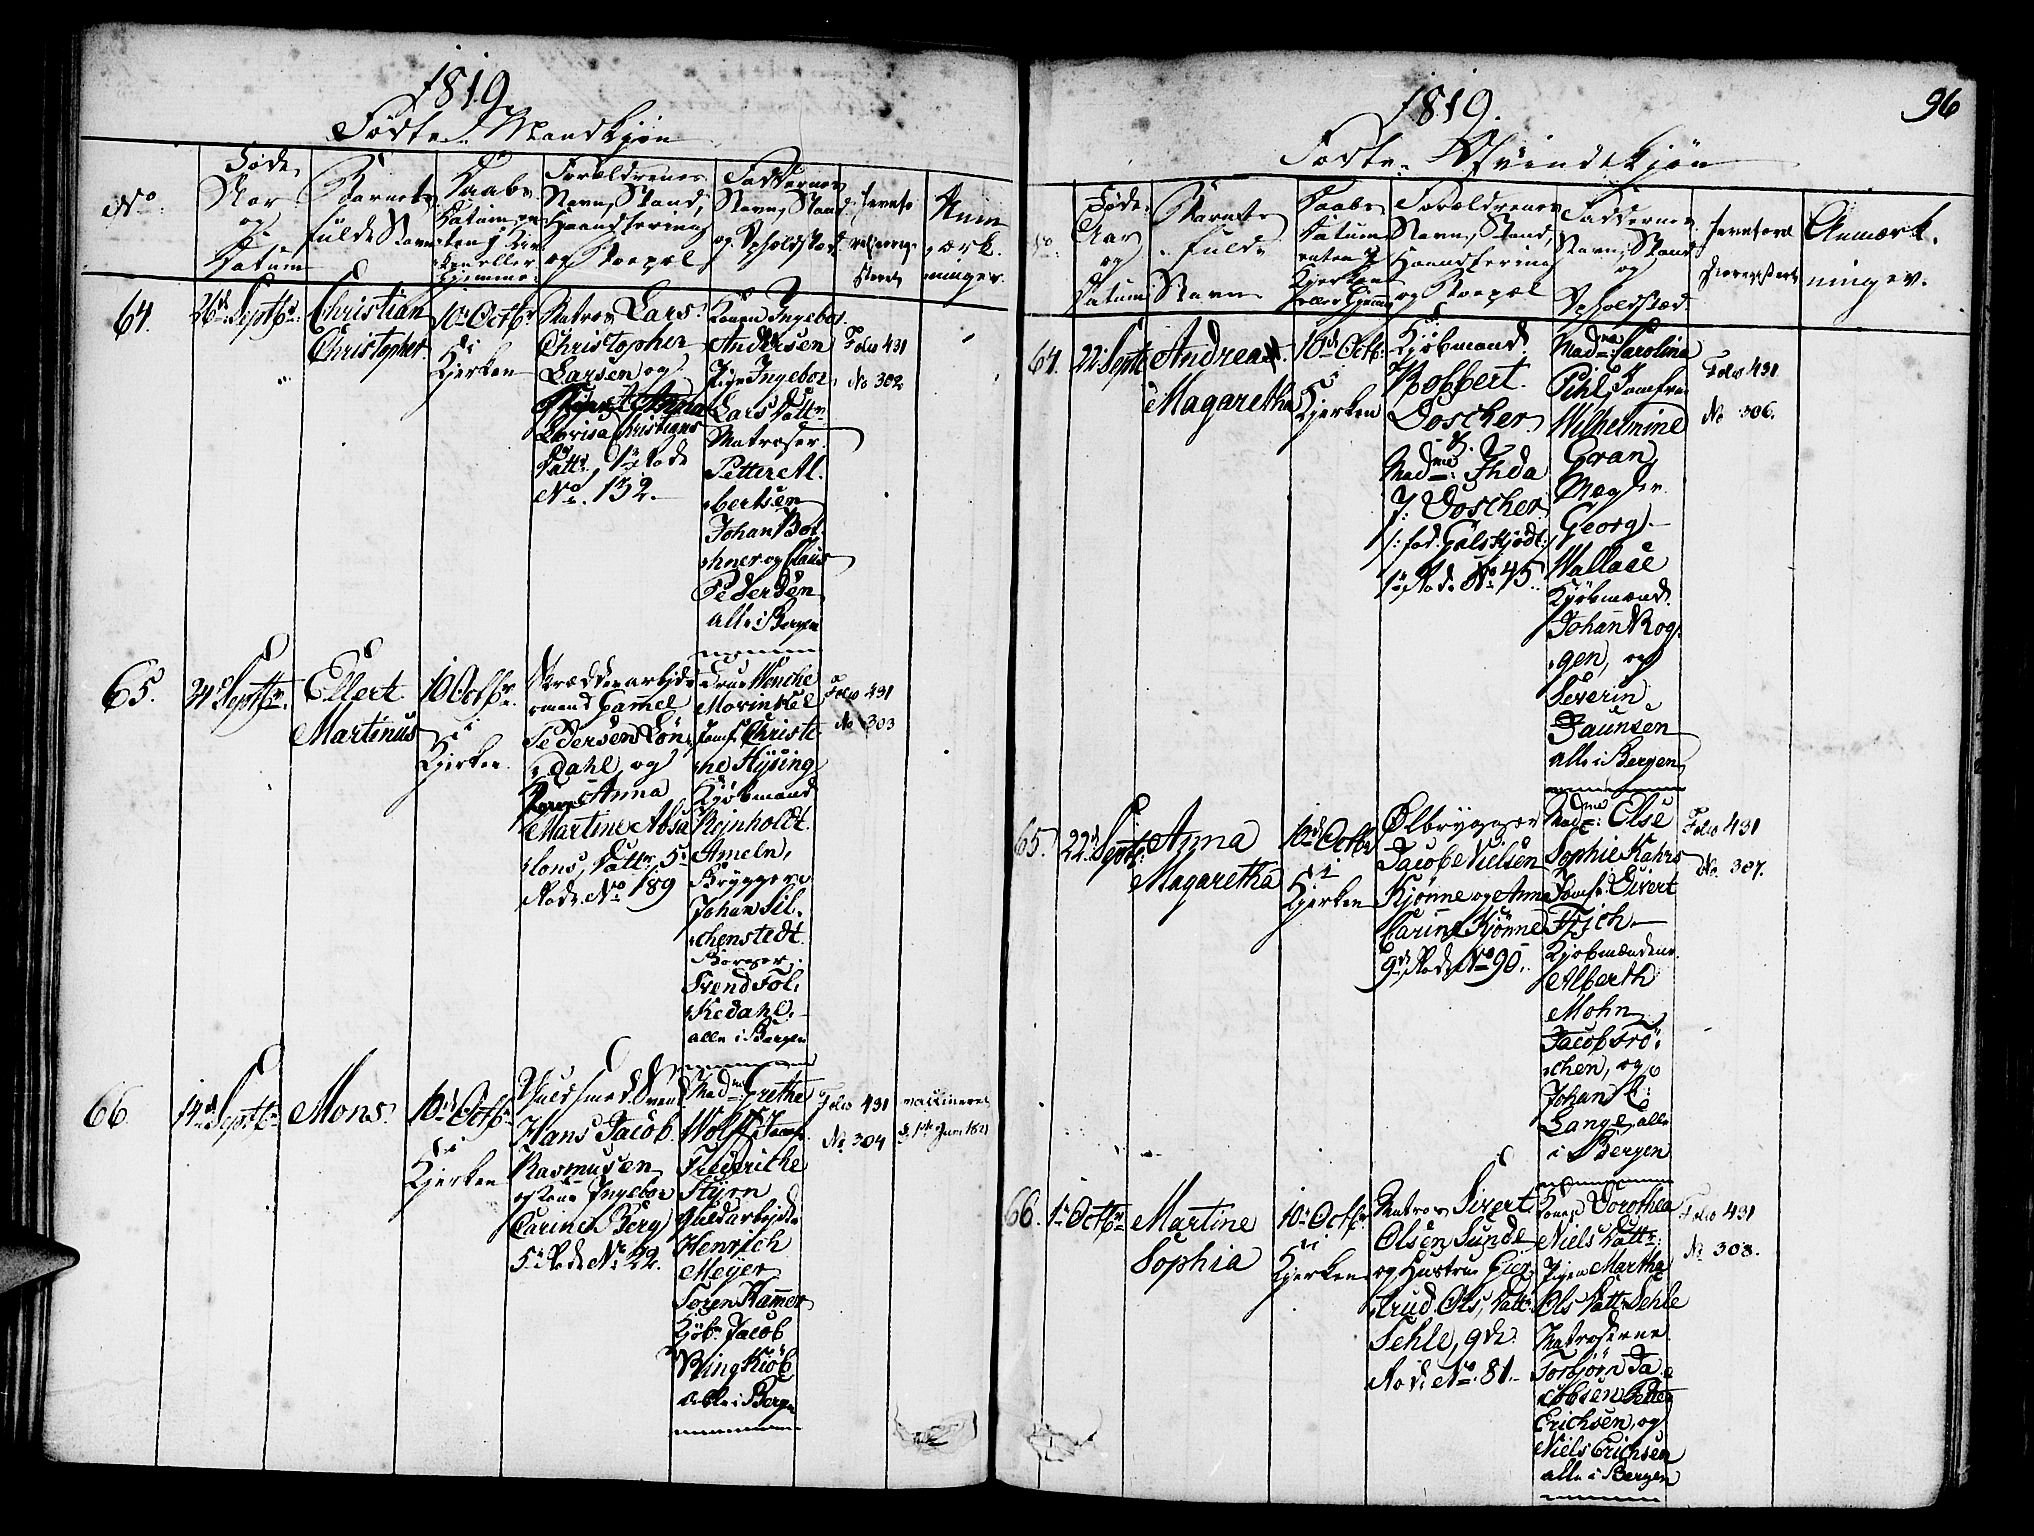 1819
Fødte Mandkjøn
No.
Føde
Aar
og
Datum
Barnets
fulde Navn
Daabs
Datum, en
ten i Kir
ken eller
Hjemme
Forældrenes
Navn, Stand,
Haandtering
og Boepæl
Faddernes
Navn, Stand
og Opholdsted
Anm
ærk
ninger.
64.
26d Septbr.
Christian
Christopher
10de Octbr
i
Kjerken
Matros Lars
Christopher
Larsen og
Lovisa Christians
Datt., 1n Rode
No. 132.
Konen Ingebor
Andersen
Pige Ingebor
Lars Datt.
Matroser
Petter Al
bertsen
Johan Bol
hner og Claus
Pedersen
alle i Bergen
Folio 431
No 302
65.
24d Septbr.
Ellert
Martinus
10 Octbr.
i
Kjerken
Skrædderarbejds
mand Gamel
Pedersen Løn
dahl og
Kone Anna
Martine Absa
lons Datter, 5te
Rode No 189
Frue Wenche
Mövinkel
Jomf. Christi
ne Hysing
Kjøbmand
Rejnholdt
Ameln,
Brygger
Johan Sil
chenstedt
Borger
Svend Fol
kedahl
alle i Bergen
Folio 431
No 303
66
14d Septbr
Mons
10d Octbr.
i
Kjerken
Guldsmed Svend
Hans Jacob
Rasmusen
og Kone Ingebor
Carina Berg
5te Rode No 22.
Madme Grethe
Wolff Jomf.
Frederikke
Styrn
Guldarbejder
Henrich
Meyer
Søren Kamer
Kjøbm. Jacob
Ringkiøb
alle i Bergen
Folio 431
No 304
vaccineret
d. 1ste Juni 1821
96
1819.
Fødte Qvindekjøn
No.
Føde
Aar
og
Datum
Barnets
fulde
Navn
Daabs
Datum
enten i
Kjerken
eller Hjemme
Forældrenes
Navn, Stand,
Haandtering
og Boepæl
Faddernes
Navn, Stand
og
Opholdsted
Anmærk
ninger.
64.
22 Septb
Andrea
Magaretha
10de Octb:
i
Kjerken
Kjøbmand
Bobbert
Doscher
&
Madme: Ihda
J: Doscher
/: fød: Galskjødt:/
1n Rode No 45.
Madme: Carolina
Pihl, Jomfru
Wilhelmine
Gran
Mægler
Georg
Wallace
Kjøbmænd
Johan Rog
gen, og
Severin
Jaunsen
alle i Bergen
Folio 431
No 306.
65.
22d Septb:
Anna
Magaretha
10de Octbr
i
Kjerken
Ølbrygger
Jacob Nielsen
Kjønne og Anna
Carina Kjønne
9de Rode No 90.
Madme: Else
Sophie Kahrs
Jomfr: Sivert
Frich
Kjøbmændene
Alberth
Mohn
Jacob Frö
chen, og
Johan A:
Lange, alle
i Bergen
Folio 431
No. 307.
66.
1te Octbr
Martine
Sophia
10de Octbr
i
Kjerken
Matros Sivert
Olsen Sunde
og Hustrue Gier
trud Ols Datt.
Sehle, 9de
Rode No. 81.
Konen Dorothea
Niels Datt:
Pigen Martha
Ols Datt. Sehle
Matroserne
Torbjörn Ja
cobsen Petter
Erichsen, og
Niels Erichsen
alle i Bergen
Folio 431
No 308.